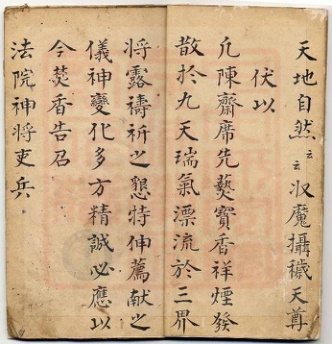 天地自然云云収魔攝穢天尊
伏以
凢陳齋席先爇寳香祥煙發
散於九天瑞氣漂流於三界
将露禱祈之懇特伸薦献之
儀神變化多方精誠必應以
今焚香告召
法院神将吏兵